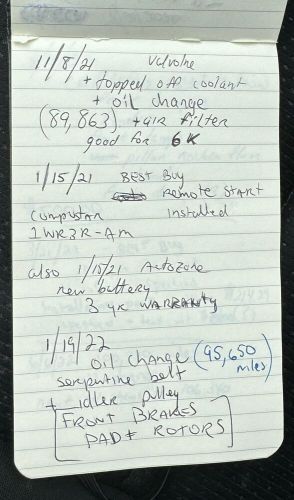 11/8/21 Valvolne
+ topped off coolant
+ oil change
(89,863) + air filter
good for 6K
1/15/21 BEST Buy
Remote START
Compustar installed
1WR3R-AM
also 1/15/21 AutoZone
new battery
3 yr WARRANTY
1/19/22
oil change (95,650
serpentine belt miles)
+ idler pulley
[FRONT BRAKES
PAD + ROTORS]